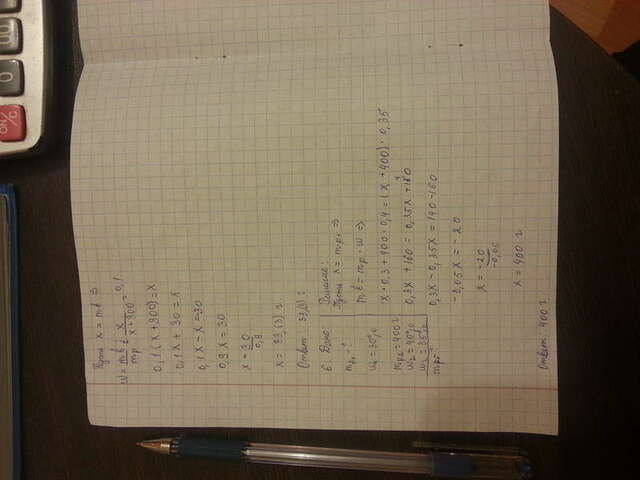 ON/C 0 00
Пусть x = mв
W = mв/mр = x/x+300 = 0,1
0,1(x+300) = x
0,1x + 30 = x
0,1x - x = -30
0,9x = 30
x = 30/0,9
x = 33,(3) г.
Ответ: 33,(3) г
6. Дано:
mр₁ - ?
W₁ = 30%
mр₂ = 400 г
W₂ = 40%
W₃ = 35%
mр₃
Решение:
Пусть x = mр₁ ⇒
mв = mр · W ⇒
x · 0,3 + 400 · 0,4 = (x + 400) · 0,35
0,3x + 160 = 0,35x + 140
0,3x - 0,35x = 140 - 160
-0,05x = -20
x = -20/-0,05
x = 400 г
Ответ: 400 г